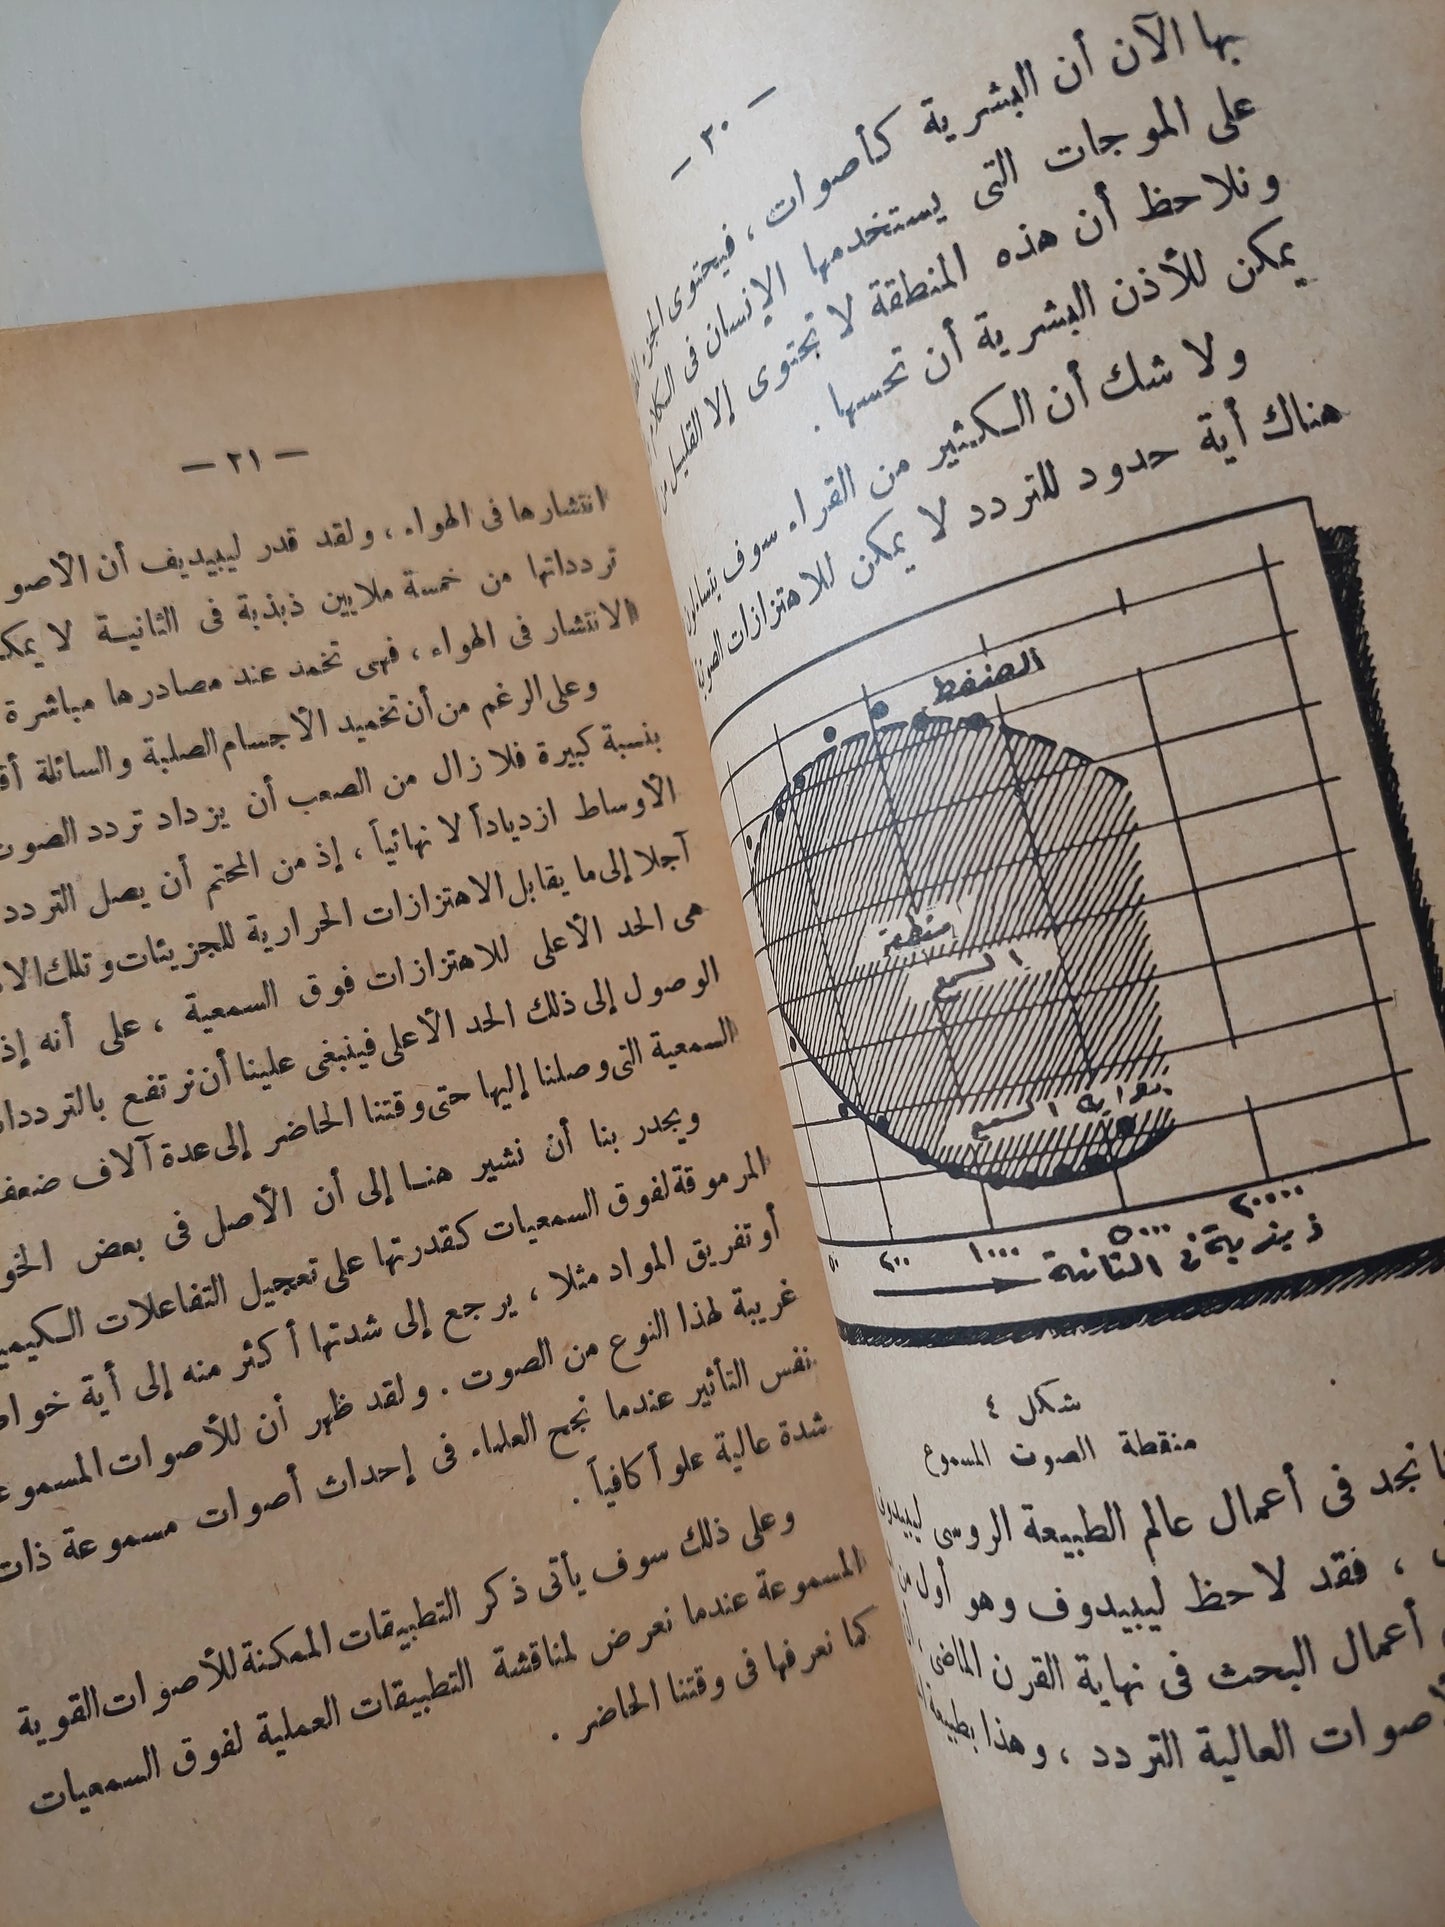 — ٢٠ —
بها الآن أن البشرية كأصوات ، فيحتوى الجزء
على الموجات التى يستخدمها الإنسان فى الكلام
ونلاحظ أن هذه المنطقة لا تحتوى إلا القليل من
يمكن للأذن البشرية أن تحسها .
ولا شك أن الكثير من القراء سوف يتساءلون
هناك أية حدود للتردد لا يمكن للاهتزازات
الضغط
منطقة
السمع
بداية السمع
٢٠٠ ١٠٠٠ ٥٠٠٠ ٢٠٠٠٠
ذبذبة فى الثانية
شكل ٤
منقطة الصوت المسموع
نجد فى أعمال عالم الطبيعة الروسى ليبيدوف
، فقد لاحظ ليبيدوف وهو أول من
أعمال البحث فى نهاية القرن الماضى ،
صوات العالية التردد ، وهذا بطبيعة
— ٢١ —
انتشارها فى الهواء ، ولقد قدر ليبيديف أن الأصو
تردداتها من خمسة ملايين ذبذبة فى الثانية لا يمكـ
الانتشار فى الهواء ، فهى تخمد عند مصادرها مباشرة
وعلى الرغم من أن تخميد الأجسام الصلبة والسائلة أقـ
بنسبة كبيرة فلا زال من الصعب أن يزداد تردد الصوت
الأوساط ازدياداً لا نهائياً ، إذ من المحتم أن يصل التردد
آجلا إلى ما يقابل الاهتزازات الحرارية للجزيئات وتلك الا
هى الحد الأعلى للاهتزازات فوق السمعية ، على أنه إذ
الوصول إلى ذلك الحد الأعلى فينبغى علينا أن نرتفع بالترددا
السمعية التى وصلنا إليها حتى وقتنا الحاضر إلى عدة آلاف ضعف
ويجدر بنا أن نشير هنا إلى أن الأصل فى بعض الخو
المرموقة لفوق السمعيات كقدرتها على تعجيل التفاعلات الكيميـ
أو تفريق المواد مثلا ، يرجع إلى شدتها أكثر منه إلى أية خواص
غريبة لهذا النوع من الصوت . ولقد ظهر أن للأصوات المسموعة
نفس التأثير عندما نجح العلماء فى إحداث أصوات مسموعة ذات
شدة عالية علواً كافياً .
وعلى ذلك سوف يأتى ذكر التطبيقات الممكنة للأصوات القوية
المسموعة عندما نعرض لمناقشة التطبيقات العملية لفوق السمعيات
كما نعرفها فى وقتنا الحاضر .